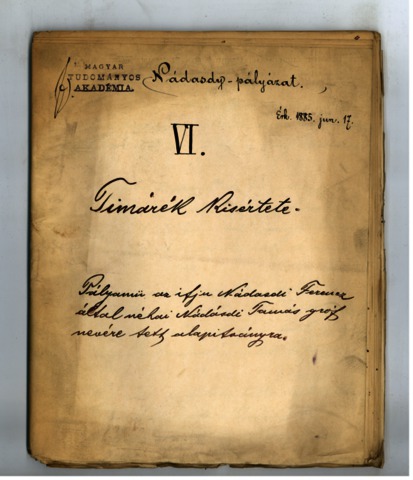 MAGYAR
TUDOMÁNYOS
AKADÉMIA.
Nádasdy-pályázat.
Érk. 1885. jun. 17.
VI.
Timárék Kisértete.
Pályamü az ifju Nádasdi Ferencz
által néhai Nádasdi Tamás gróf
nevére tett alapitványra.